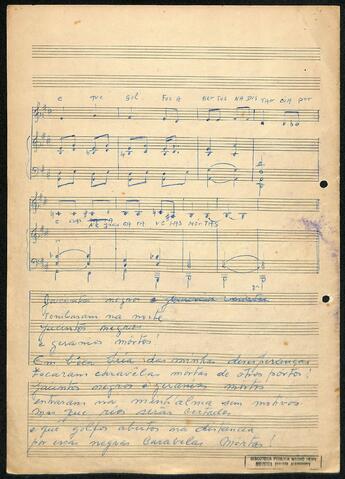 E que gol fos A ber tos NA DIS TAN CIA por
E SSAS NE gras CA RA VE LAS MOR TAS
negros
Tombaram na noite
Jacintos negros
e geranios mortos!
Em bica das minhas desesperanças
Tocaram caravelas mortas de otros portos!
Jacintos negros e geranios mortos
entraram na minh'alma sem motivos
mas que rios serão
e que golfos abertos na distancia
por essas negras Caravelas Mortas!
BIBLIOTECA PÚBLICA